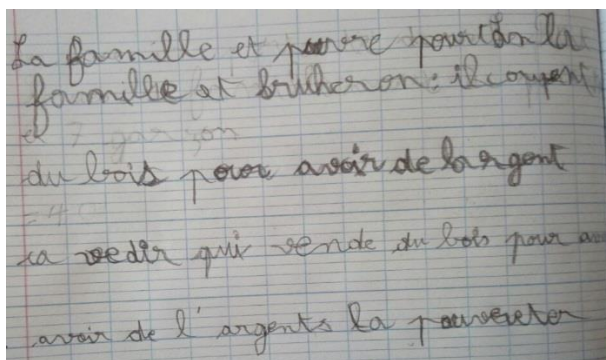 La famille et pauvre pourtan la
famille et bucheron : il coupent
et 7 garçon
du bois pour avoir de largent
ca vedir qui vende du bois pour a
avoir de l'argents la pauvereter